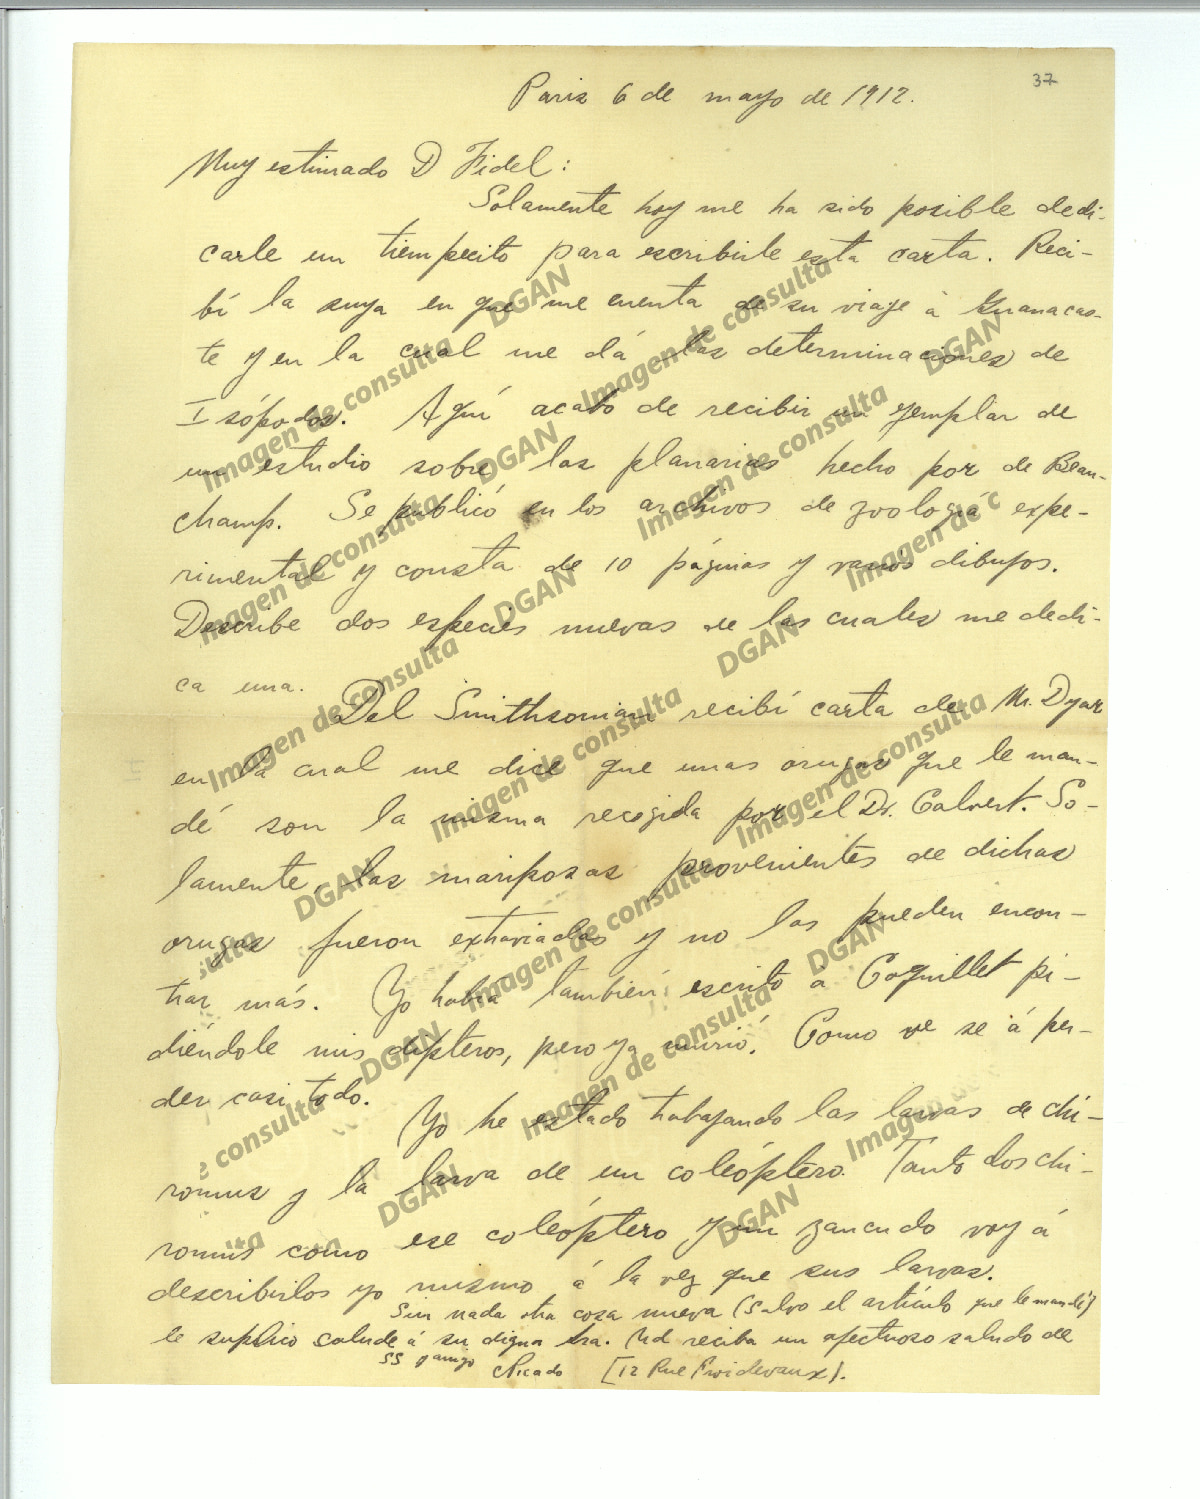 37
Paris 6 de mayo de 1912.
Muy estimado D Fidel:
Solamente hoy me ha sido posible dedi-
carle un tiempecito para escribirle esta carta. Reci-
bí la suya en que me cuenta de su viaje à Guanacas-
te y en la cual me dá las determinaciones de
Isópodos. Aquí acabo de recibir un ejemplar de
un estudio sobre las planarias hecho por de Beau-
champ. Se publicó en los archivos de zoología expe-
rimental y consta de 10 páginas y varios dibujos.
Describe dos especies nuevas de las cuales me dedi-
ca una.
Del Smithsonian recibí carta de Mr. Dyar
en la cual me dice que unas orugas que le man-
dé son la misma recogida por el Dr. Calvert. So-
lamente, las mariposas provenientes de dichas
orugas fueron extraviadas y no las pueden encon-
trar más. Yo había también escrito a Coquillet pi-
diéndole mis dípteros, pero ya murió. Como ve se á per-
der casi todo.
Yo he estado trabajando las larvas de chi-
romus y la larva de un coleóptero. Tanto los chi-
romus como ese coleóptero y un zancudo voy á
describirlos yo mismo á la vez que sus larvas.
Sin nada otra cosa nueva (salvo el artículo que le mandé)
le suplico salude á su digna Sra. Ud reciba un afectuoso saludo de
SS y amigo
CPicado [12 Rue Froidevaux).
Imagen de consulta DGAN